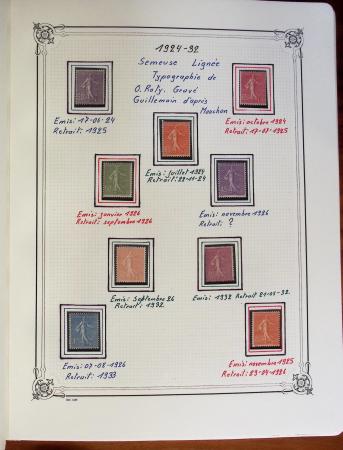 1924-32
Semeuse Lignée
Typographie de
O. Roty. Gravé
Guillemain d'après
Mouchon
Emis: 17-06-24
Retrait: 1925
Emis: octobre 1924
Retrait: 17-07-1925
Emis: juillet 1924
Retrait: 22-11-24
Emis: janvier 1926
Retrait: septembre 1926
Emis: novembre 1926
Retrait: ?
Emis: septembre 26
Retrait: 1932
Emis: 1932 Retrait 21-01-32
Emis: 07-08-1926
Retrait: 1933
Emis: novembre 1925
Retrait: 23-04-1926